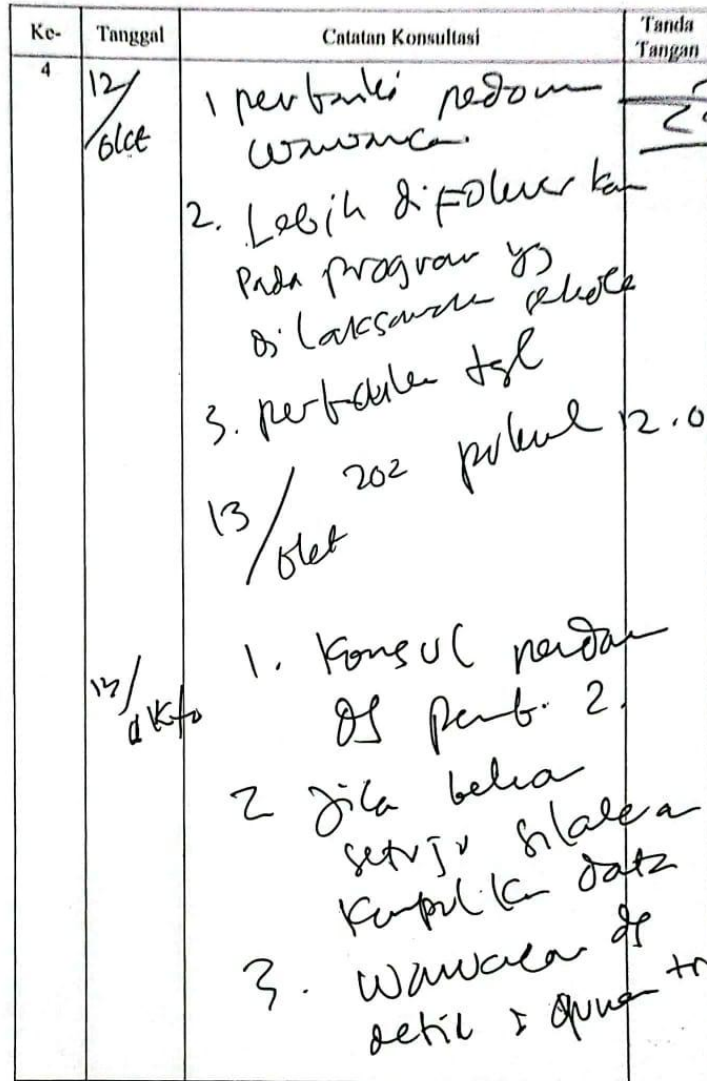 Ke- Tanggal Catatan Konsultasi Tanda Tangan
4
12/okt
1 perbaiki pedoman
wawanca.
2. Lebih difokuskan
Pada program yg
dilaksanakan sekola
3. perbaikan tgl
13/okt 202 pukul 12.0
13/okto
1. Konsul pedom
dg pemb. 2.
2 Jika belia
setuju silakan
Kumpulkan data
3. wawacara dg
detil